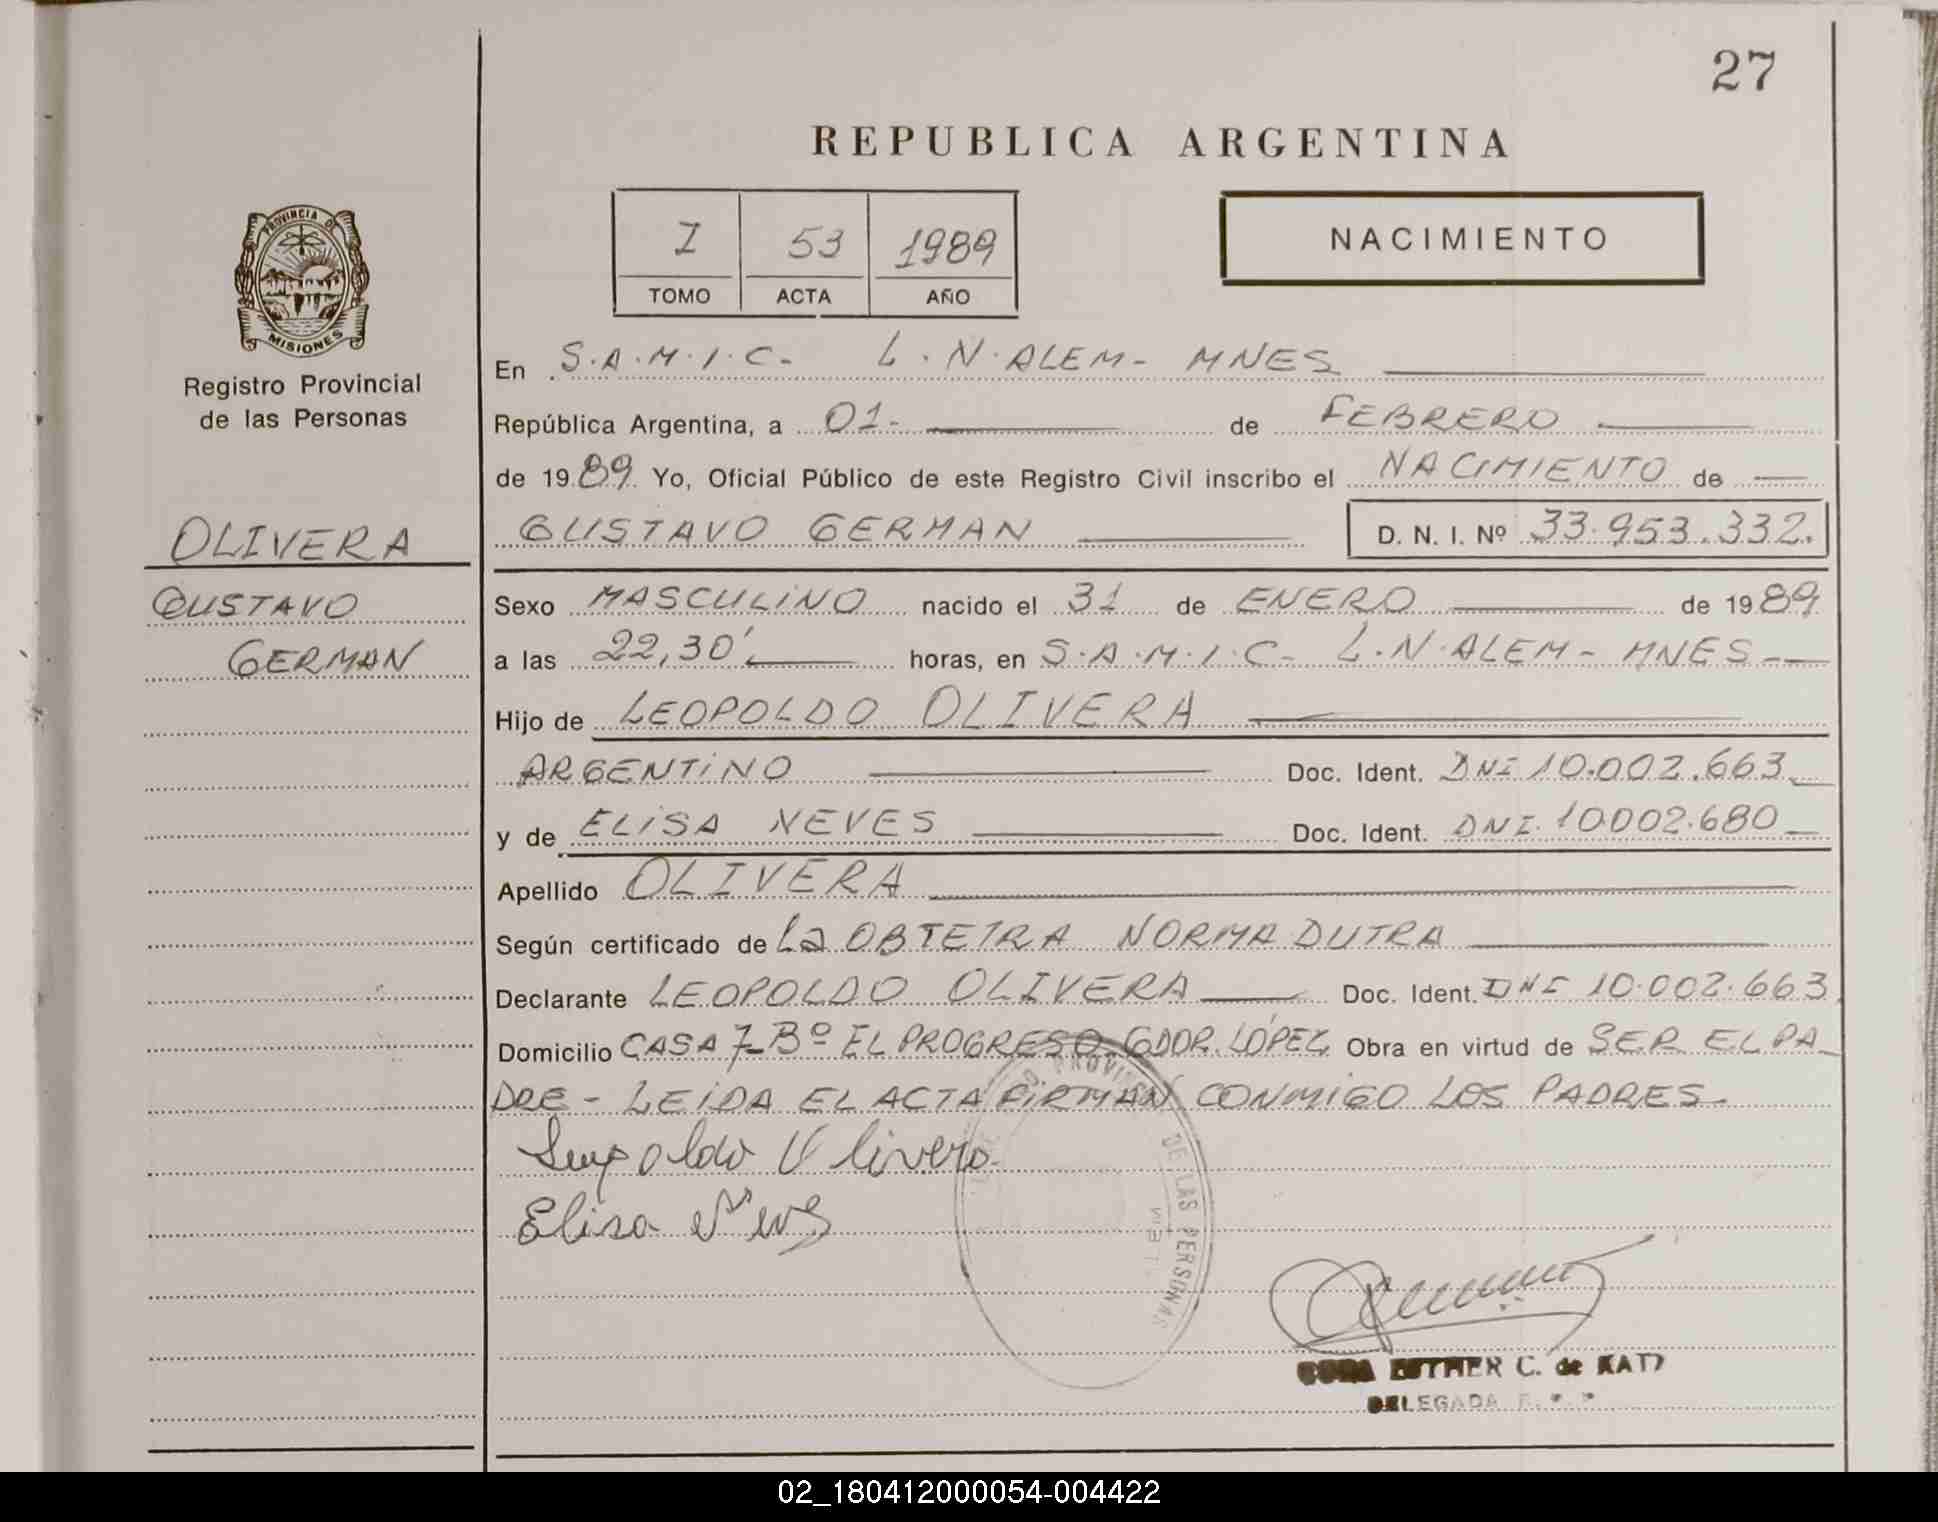 27
REPUBLICA ARGENTINA
I 53 1989
TOMO ACTA AÑO
NACIMIENTO
PROVINCIA DE
MISIONES
Registro Provincial
de las Personas
OLIVERA
GUSTAVO
GERMAN
En S.A.M.I.C. L.N.ALEM- MNES
República Argentina, a 01- de FEBRERO
de 1989 Yo, Oficial Público de este Registro Civil inscribo el NACIMIENTO de
GUSTAVO GERMAN D. N. I. Nº 33.953.332.
Sexo MASCULINO nacido el 31 de ENERO de 1989
a las 22,30' horas, en S.A.M.I.C- L.N.ALEM- MNES-
Hijo de LEOPOLDO OLIVERA
ARGENTINO Doc. Ident. DNI 10.002.663
y de ELISA NEVES Doc. Ident. DNI. 10002.680
Apellido OLIVERA
Según certificado de La OBTETRA NORMA DUTRA
Declarante LEOPOLDO OLIVERA Doc. Ident. DNI 10.002.663
Domicilio CASA 7-Bº EL PROGRESO-GDOR.LÓPEZ Obra en virtud de SER EL PA-
DRE- LEIDA EL ACTA FIRMAN CONMIGO LOS PADRES-
Leopoldo Olivera
Elisa Neves
DE LAS PERSONAS
ESTHER C. de KATZ
DELEGADA
02_180412000054-004422